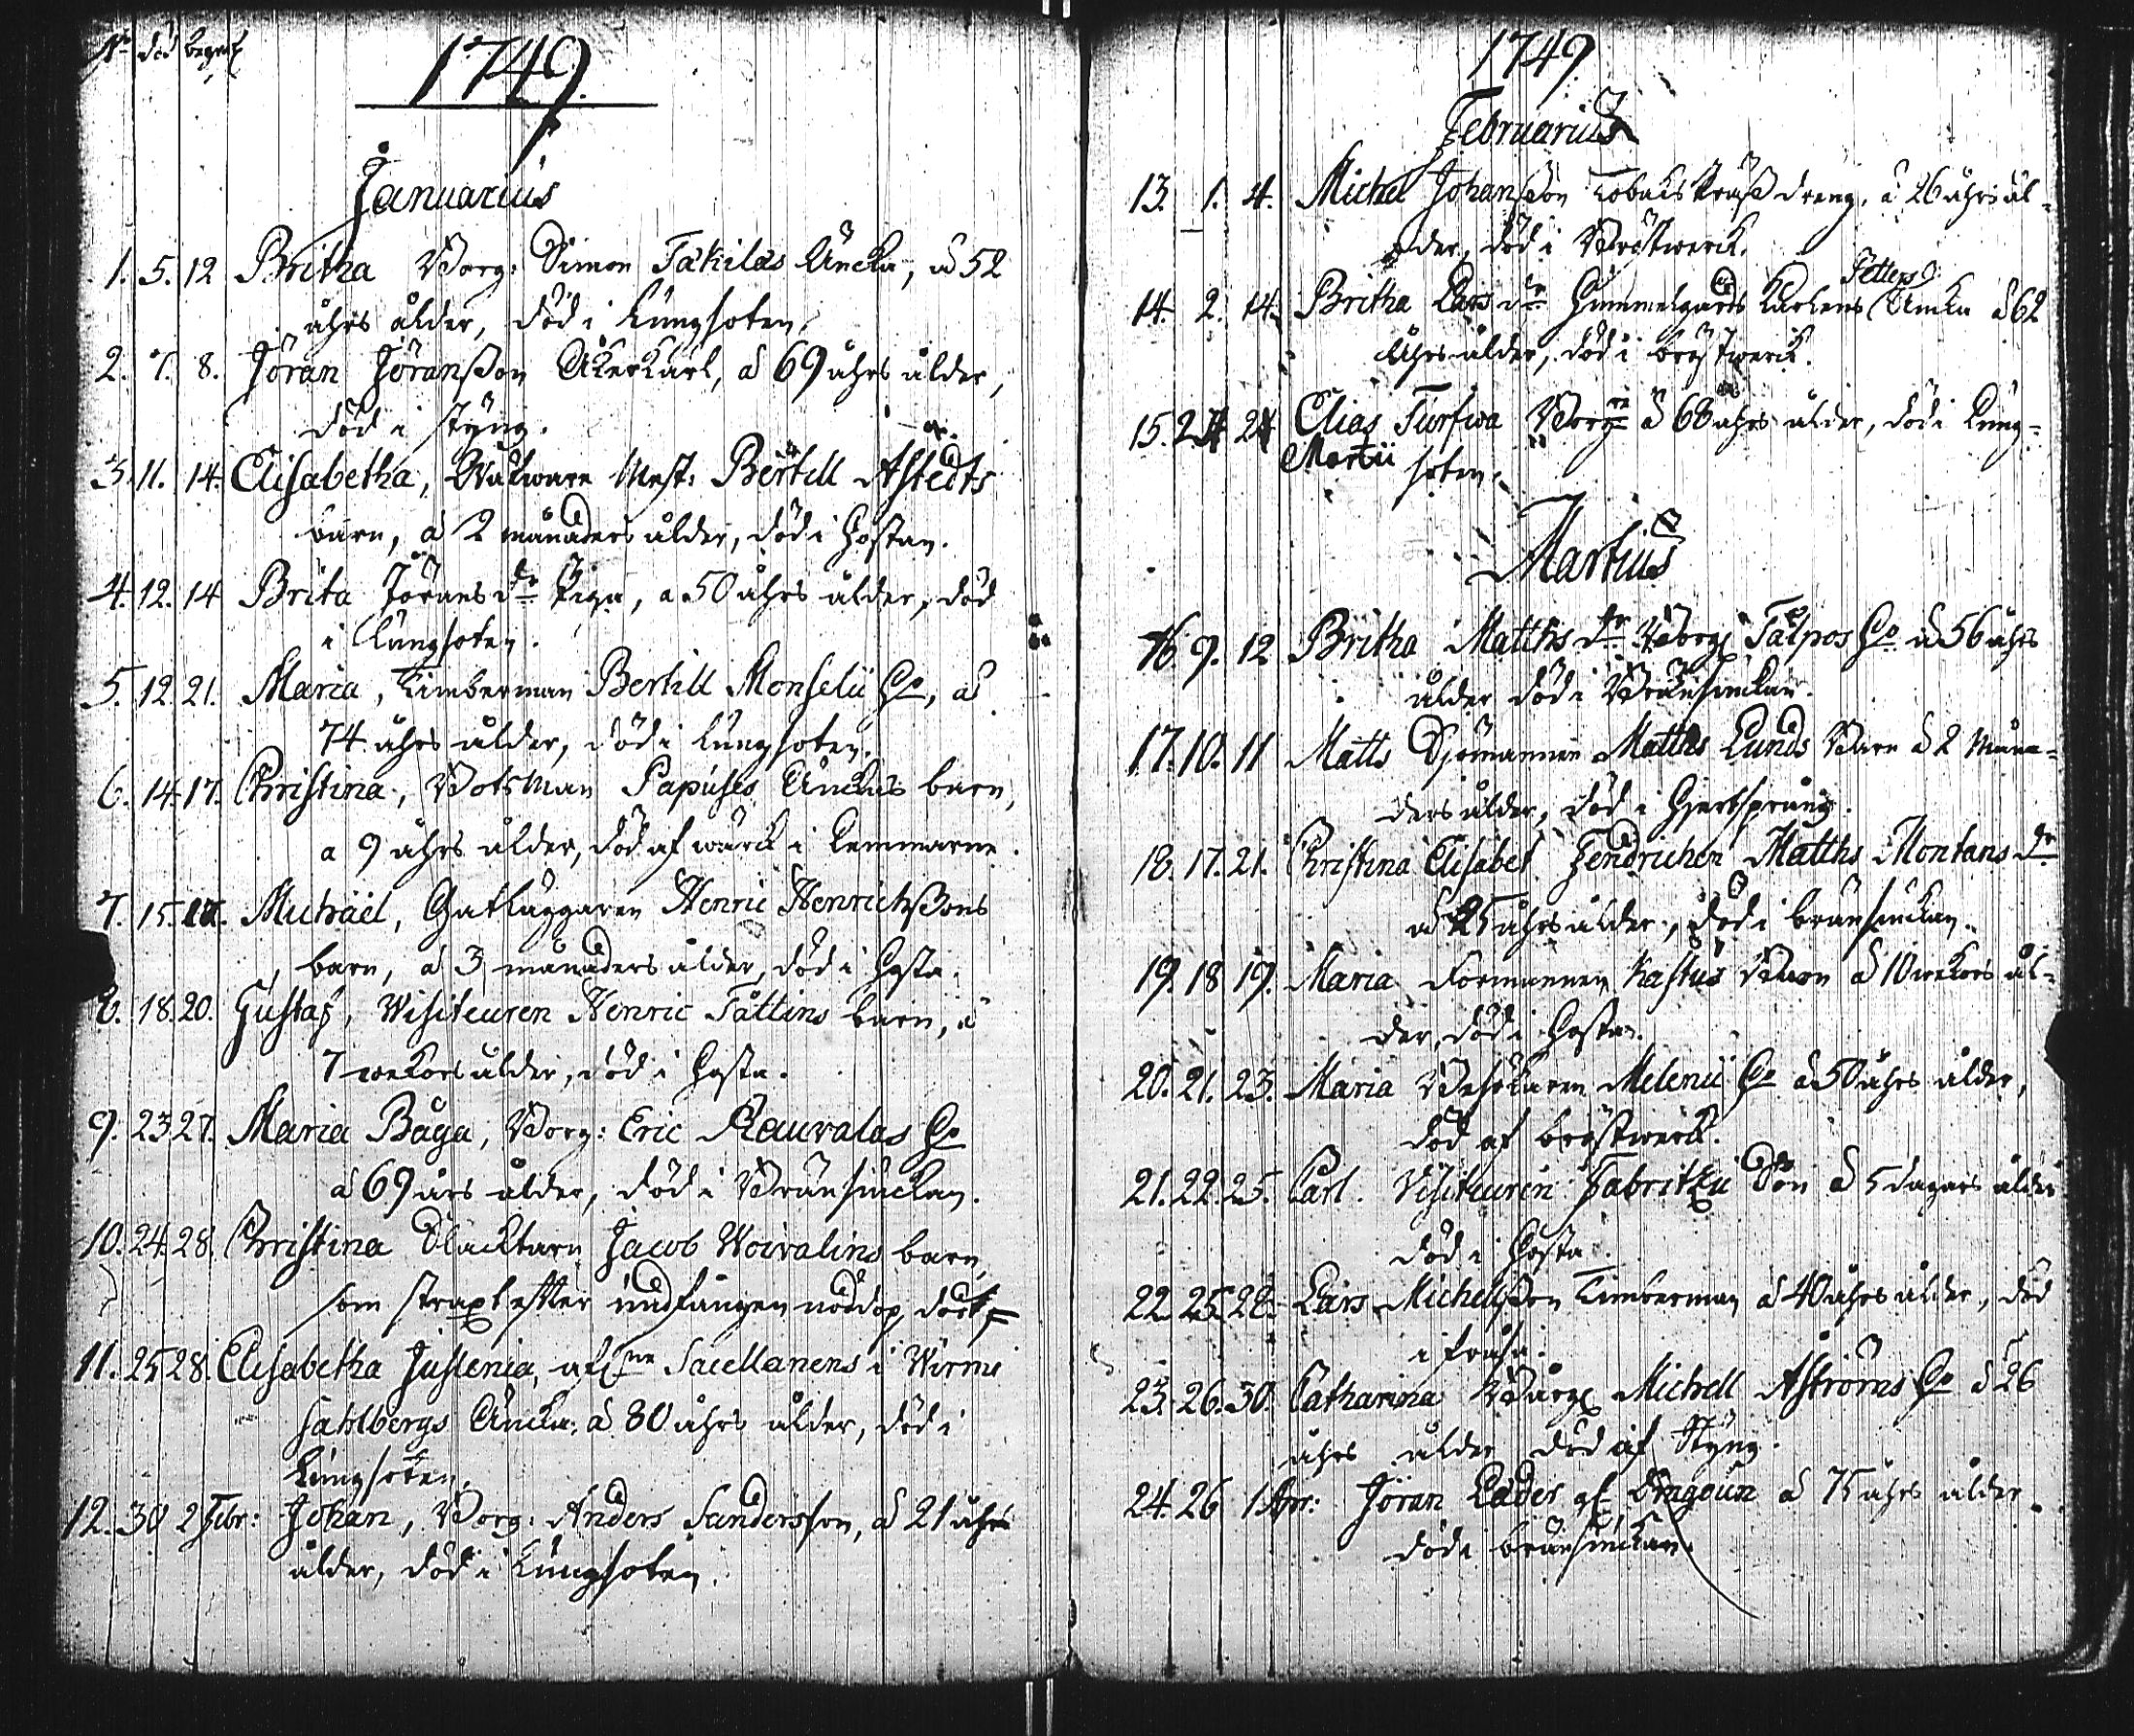 No död begraf
1749.
Januarius
1. 5. 12 Britha Borg: Simon Takilas Änckia, å 52
åhrs ålder, död i Lungsoten.
2. 7. 8. Jöran Jöranßon Åkerkarl, å 69 åhrs ålder,
död i styng.
3. 11. 14. Elisabetha, Mest: Bertill Astedts
barn, å 2 månaders ålder, död i Hostan.
4. 12. 14 Brita Jörans dr Piga, a 50 åhrs ålder, död
i Lungsoten.
5. 12. 21. Maria, Timberman Bertill Monselii Ho, å
74 åhrs ålder, död i Lungsoten.
6. 14. 17. Christina, Botsman Papuses Änckias barn,
a 9 åhrs ålder, död af wärck i Lemmarne.
7. 15. 17. Michael, Gatläggaren Henric Henrichßons
barn, å 3 månaders ålder, död i Hosta.
8. 18. 20. Gustaf, Visiteuren Henric Tåttins barn, å
7 wekors ålder, död i Hosta.
9. 23 27. Maria Båga, Borg: Eric Rauvalas Ho
å 69 åhrs ålder, död i Brännsiuckan.
10. 24. 28. Christina Slacktarn Jacob Woivalins barn,
som straxt effter undfången nöddop, dödt
11. 25 28. Elisabetha Juslenia, afl. Sacellanens i Wirmo
Sahlbergs Äncka, å 80 åhrs ålder, död i
Lungsoten.
12. 30 2 Febr: Johan, Borg: Anders Sandersson, å 21 åhrs
ålder, död i Lungsoten.
1749
Februarius
13. 1. 4. Michel Johanßon Tobaks dreng, å 26 åhrs ål=
der, död i Bröstwerck.
14. 2. 14. Britha Lars dr Hummelgårds Karlens Petters Äncka å 62
åhrs ålder, död i bröstwerck.
15. 24 24 Elias Turfwa Borg å 68 åhrs ålder, död i Lung=
Martii soten.
Martius
16. 9. 12 Britha Matths dr Borg: Talpos Ho å 56 åhrs
ålder död i Brännsiuckan.
17. 10. 11 Matts Sjömannen Matths Lunds Barn å 2 Måna=
ders ålder, död i Hjertsprång.
18. 17. 21. Christina Elisabet Fendrichen Matths Montans dr
å 25 åhrs ålder, död i brännsiuckan.
19. 18 19. Maria Formannen Kastus Barn å 10 wekors ål=
der, död i Hosta.
20. 21. 23. Maria Besökaren Melenii Ho å 50 åhrs ålder,
död af bröstwerck.
21. 22. 25. Carl Visiteuren Fabritzii Son å 5 dagars ålder
död i Hosta.
22. 25. 28. Lars Michelßon Timberman å 40 åhrs ålder, död
i frosa.
23. 26. 30. Catharina Borg: Michell Aströms Ho å 26
åhrs ålder död af Styng.
24. 26 1 Apr: Jöran Lader å 75 åhrs ålder.
död i brännsiuckan.